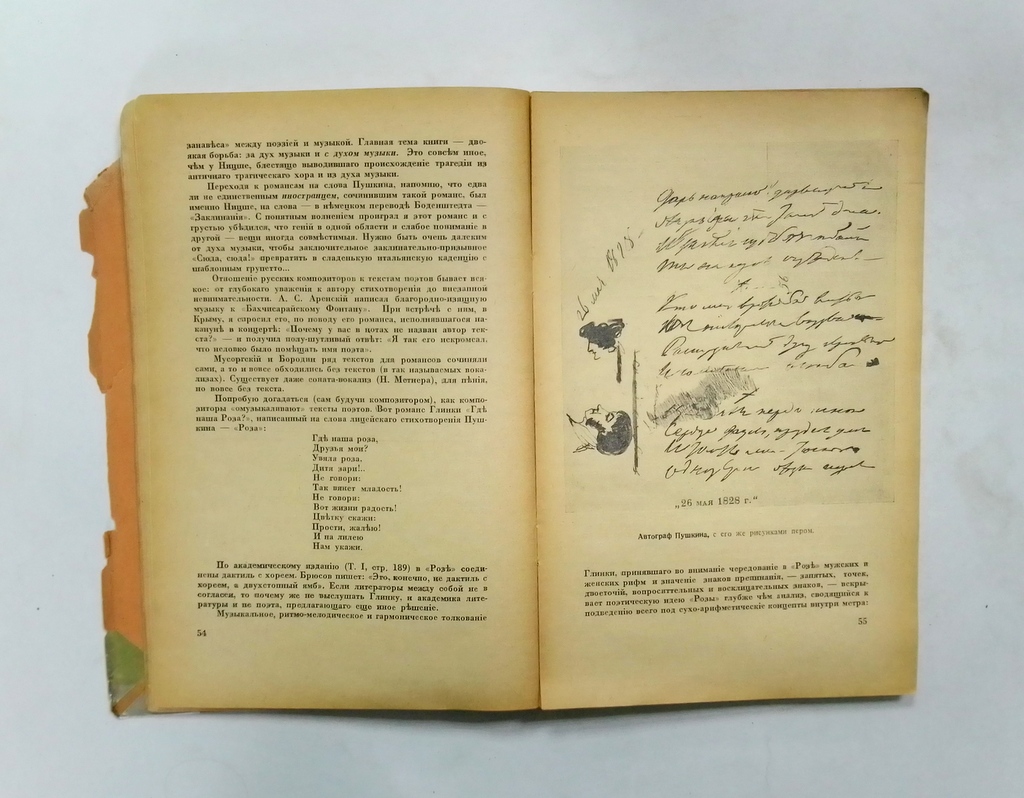 занавѣса» между поэзіей и музыкой. Главная тема книги — дво-
якая борьба: за дух музыки и с духом музыки. Это совсѣм иное,
чѣм у Ницше, блестяще выводившаго происхожденіе трагедіи из
античнаго трагическаго хора и из духа музыки.
Переходя к романсам на слова Пушкина, напомню, что едва
ли не единственным иностранцем, сочинившим такой романс, был
именно Ницше, на слова — в нѣмецком переводѣ Боденштедта —
«Заклинанія». С понятным волненіем проиграл я этот романс и с
грустью убѣдился, что геній в одной области и слабое пониманіе в
другой — вещи иногда совмѣстимыя. Нужно быть очень далеким
от духа музыки, чтобы заключительное заклинательно-призывное
«Сюда, сюда!» превратить в сладенькую итальянскую каденцію с
шаблонным групетто...
Отношеніе русских композиторов к текстам поэтов бывает вся-
кое: от глубокаго уваженія к автору стихотворенія до внезапной
невнимательности. А. С. Аренскій написал благородно-изящную
музыку к «Бахчисарайскому Фонтану». При встрѣчѣ с ним, в
Крыму, я спросил его, по поводу его романса, исполнявшагося на-
канунѣ в концертѣ: «Почему у вас в нотах не назван автор тек-
ста?» — и получил полу-шутливый отвѣт: «Я так его искромсал,
что неловко было помѣщать имя поэта».
Мусоргскій и Бородин ряд текстов для романсов сочиняли
сами, а то и вовсе обходились без текстов (в так называемых вока-
лизах). Существует даже соната-вокализ (Н. Метнера), для пѣнія,
но вовсе без текста.
Попробую догадаться (сам будучи композитором), как компо-
зиторы «омузыкаливают» тексты поэтов. Вот романс Глинки «Гдѣ
наша Роза?», написанный на слова лицейскаго стихотворенія Пуш-
кина — «Роза»:
Гдѣ наша роза,
Друзья мои?
Увяла роза,
Дитя зари!..
Не говори:
Так вянет младость!
Не говори:
Вот жизни радость!
Цвѣтку скажи:
Прости, жалѣю!
И на лилею
Нам укажи.
По академическому изданію (Т. I, стр. 189) в «Розѣ» соеди-
нены дактиль с хореем. Брюсов пишет: «Это, конечно, не дактиль с
хореем, а двухстопный ямб». Если литераторы между собой не в
согласіи, то почему же не выслушать Глинку, и академика лите-
ратуры и не поэта, предлагающаго еще иное рѣшеніе.
Музыкальное, ритмо-мелодическое и гармоническое толкованіе
54
26 мая 1828
„26 мая 1828 г.“
Автограф Пушкина, с его же рисунками пером.
Глинки, принявшаго во вниманіе чередованіе в «Розѣ» мужских и
женских рифм и значеніе знаков препинанія, — запятых, точек,
двоеточій, вопросительных и восклицательных знаков, — вскры-
вает поэтическую идею «Розы» глубже чѣм анализ, сводящійся к
подведенію всего под сухо-арифметическіе концепты внутри метра:
55